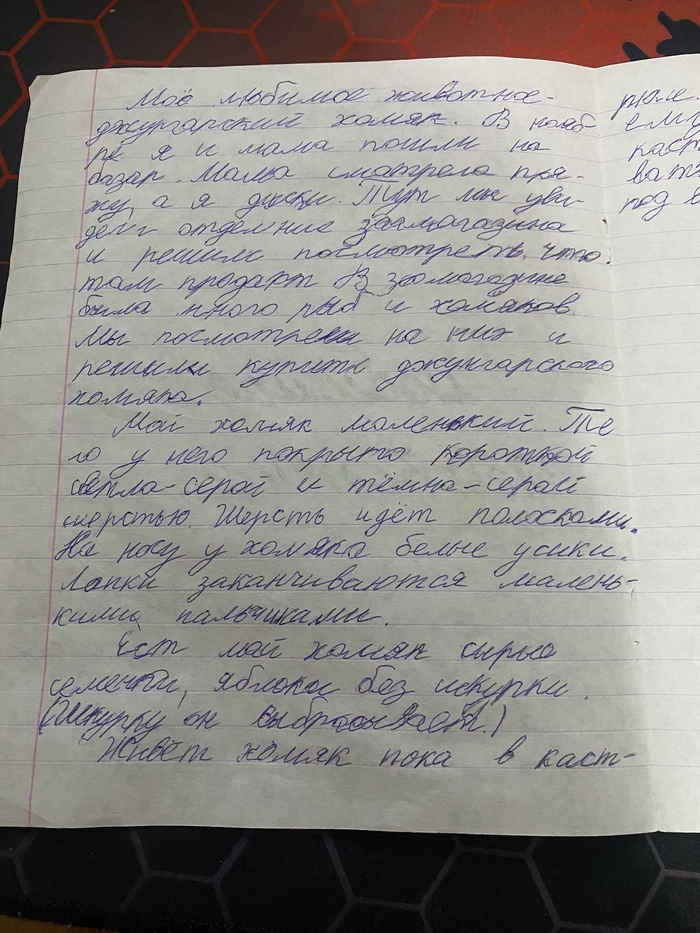 Моё любимое животное-
джунгарский хомяк. В нояб
ре я и мама пошли на
базар. Мама смотрела пря-
жу, а я диски. Тут мы уви-
дели отделние зоомогазина
и решили посмотреть, что
там продают. В зоомогазине
было много рыб и хомяков.
Мы посмотрели на них и
решили купить джунгарского
хомяка.
Мой хомяк маленький. Те
ло у него покрыто короткой
светла-серой и тёмна-серой
шерстью. Шерсть идёт полосками.
На носу у хомяка белые усики.
Лапки заканчиваются малень-
кими пальчиками.
Ест мой хомяк сырые
семечки, яблоки без шкурки.
(Шкурку он выбрасывает.)
Живёт хомяк пока в каст-
рюле.
ему
каст
ват
под